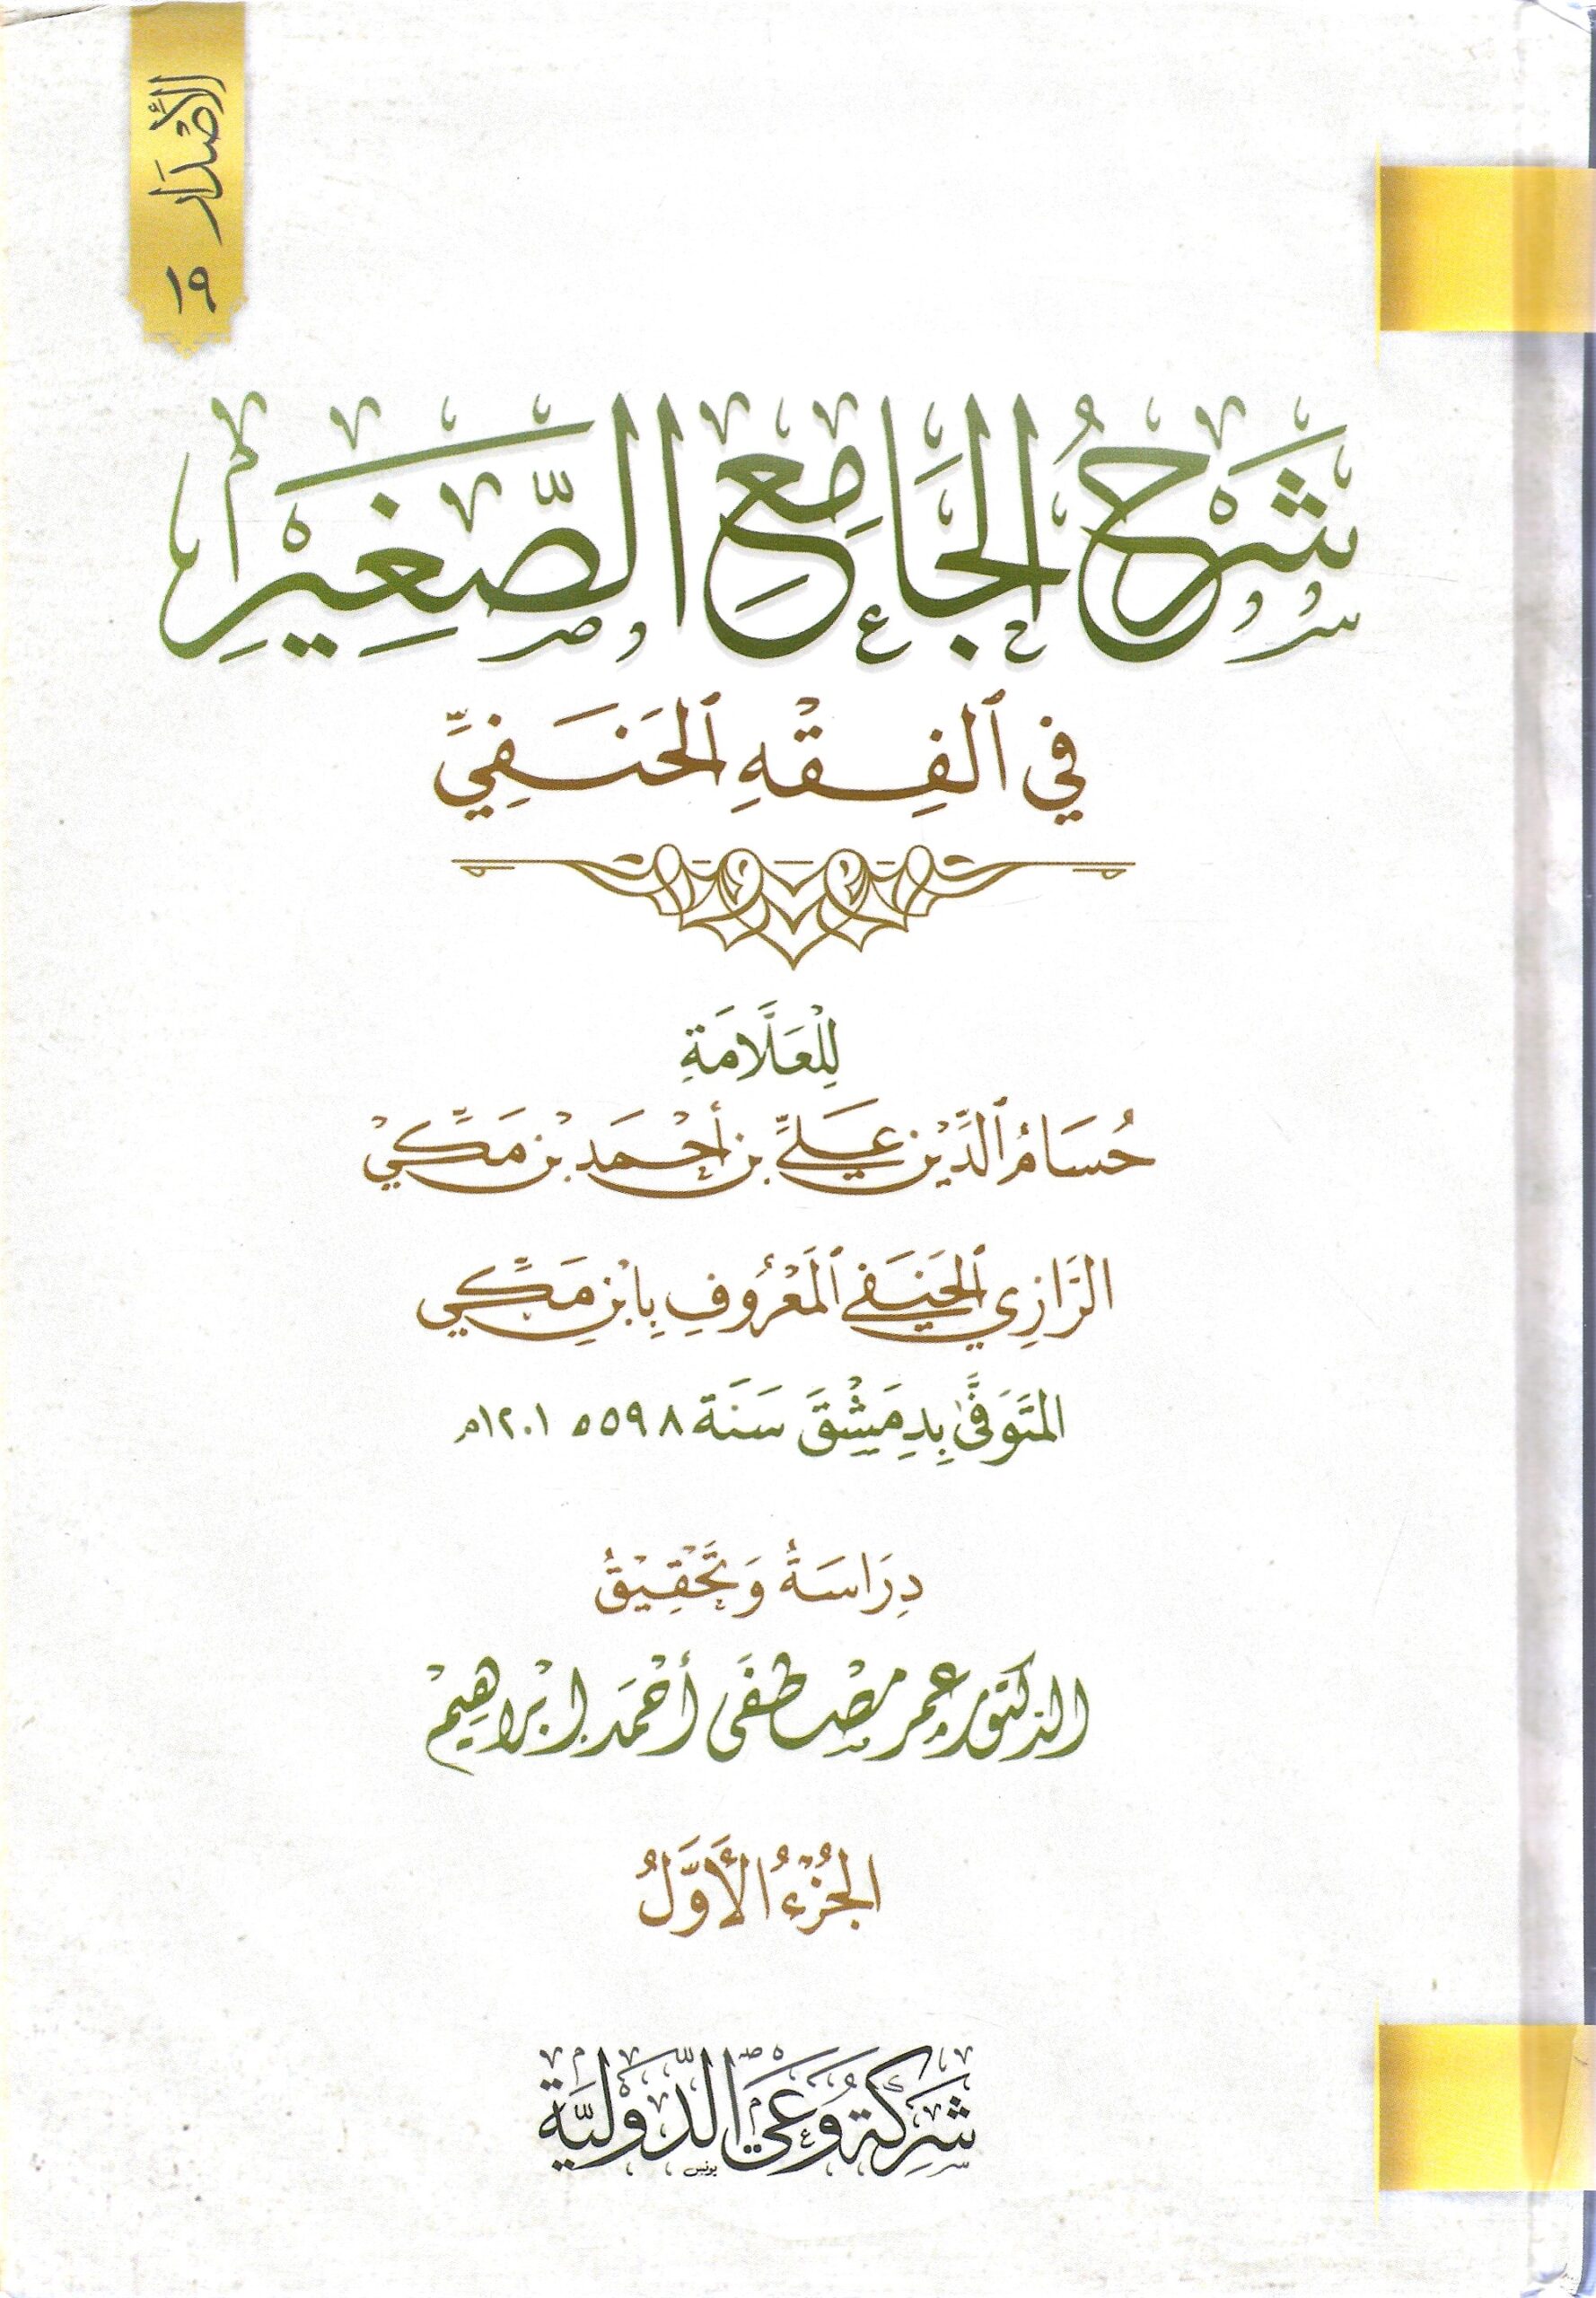 الأصدار ١٩
شَرْحُ الجَامِعِ الصَّغِيرِ
في الفِقْهِ الحَنَفِيِّ
لِلْعَلَّامَةِ
حُسَامُ الدِّيْنِ عَلِيِّ بن أَحْمَد بْن مَكِّيْ
الرَّازِي الحَنَفي المَعْرُوفِ بِابْنِ مَكِّي
المتَوَفَّى بِدِمَشْقَ سَنَة ٥٩٨ه ١٢٠١م
دِرَاسَةُ وَتَحْقِيْقُ
الدكتور عمر مصْطفَى أحْمَد إبْراهِيْم
الجُزْءُ الأَوَّلُ
شَرِكَة وَعْي الدَّوليَّة
يونس